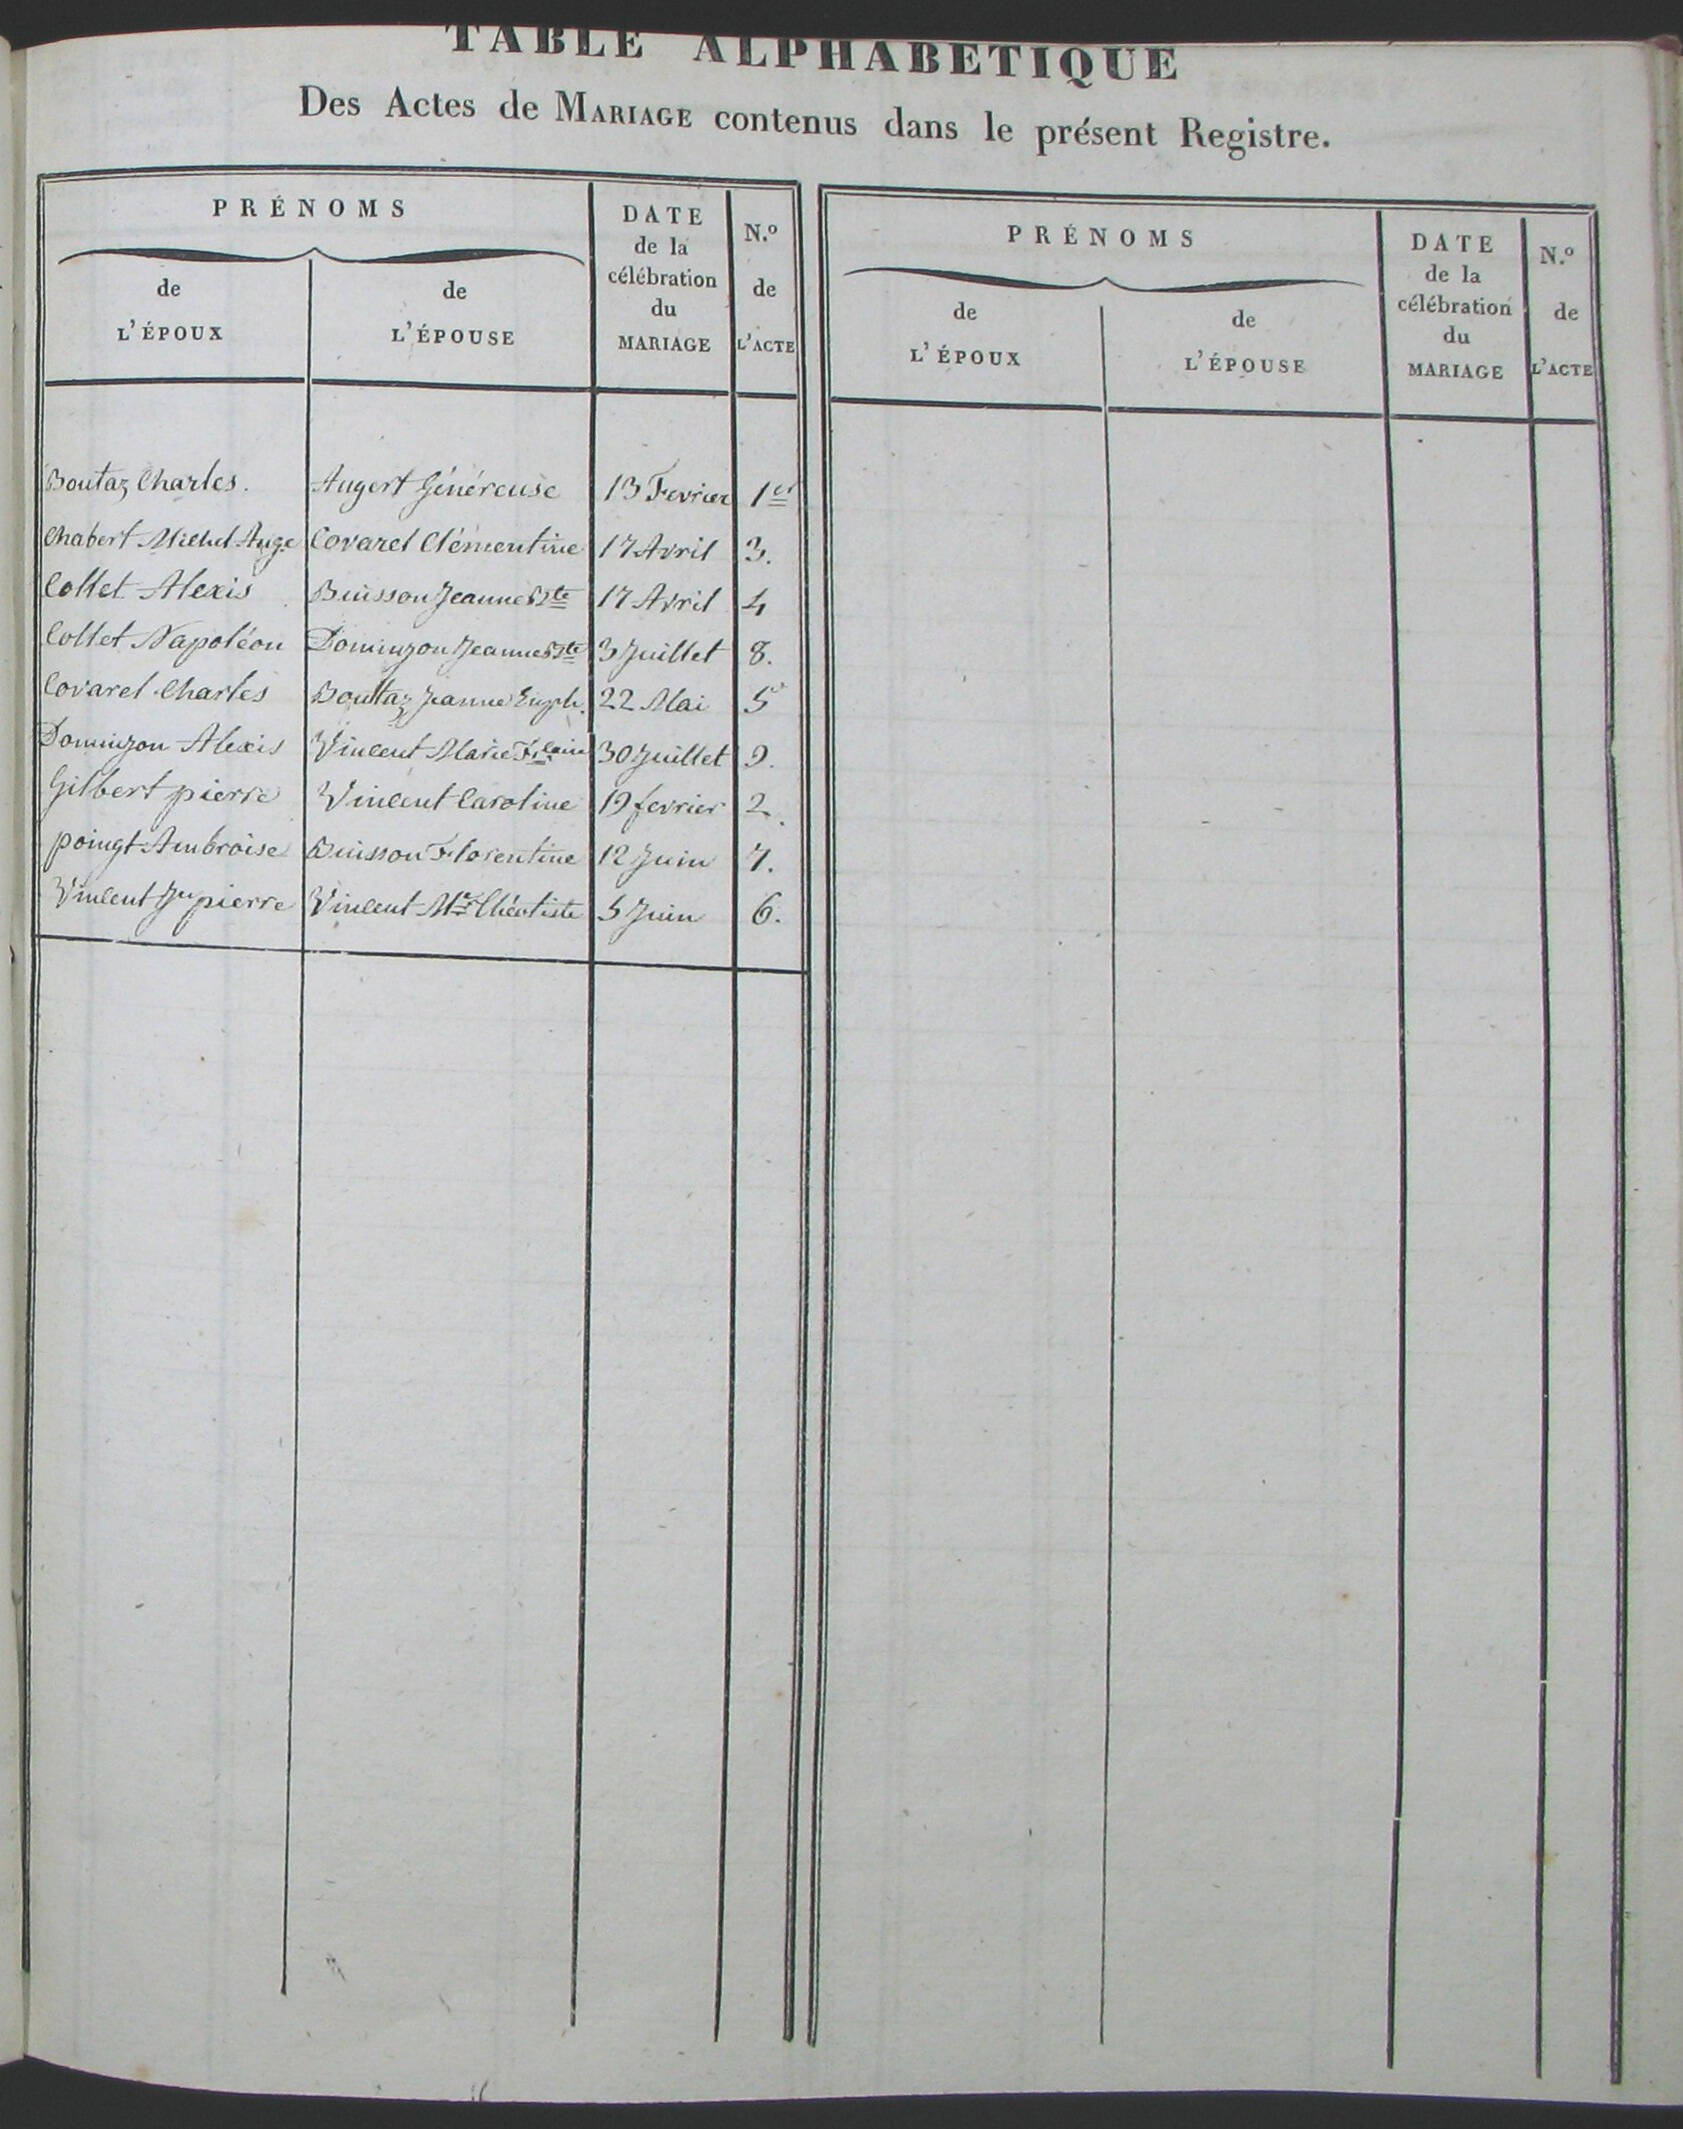 TABLE ALPHABÉTIQUE
Des Actes de MARIAGE contenus dans le présent Registre.
PRÉNOMS
de
L'ÉPOUX
de
L'ÉPOUSE
DATE
de la
célébration
du
MARIAGE
N.º
de
L'ACTE
PRÉNOMS
de
L'ÉPOUX
de
L'ÉPOUSE
DATE
de la
célébration
du
MARIAGE
N.º
de
L'ACTE
Boutaz Charles. Augert Généreuse 13 Fevrier 1er
Chabert Michel Ange Covarel Clémentine 17 Avril 3.
Collet Alexis Buisson Jeanne Bte 17 Avril 4
Collet Napoléon Dominjon Jeanne Bte 3 Juillet 8.
Covarel Charles Bouttaz Jeanne Euph. 22 Mai 5
Dominjon Alexis Vincent Marie 30 Juillet 9.
Gilbert pierre Vincent Caroline 19 fevrier 2.
poingt Ambroise Buisson Florentine 12 Juin 7.
Vincent Jn pierre Vincent Mie 5 Juin 6.